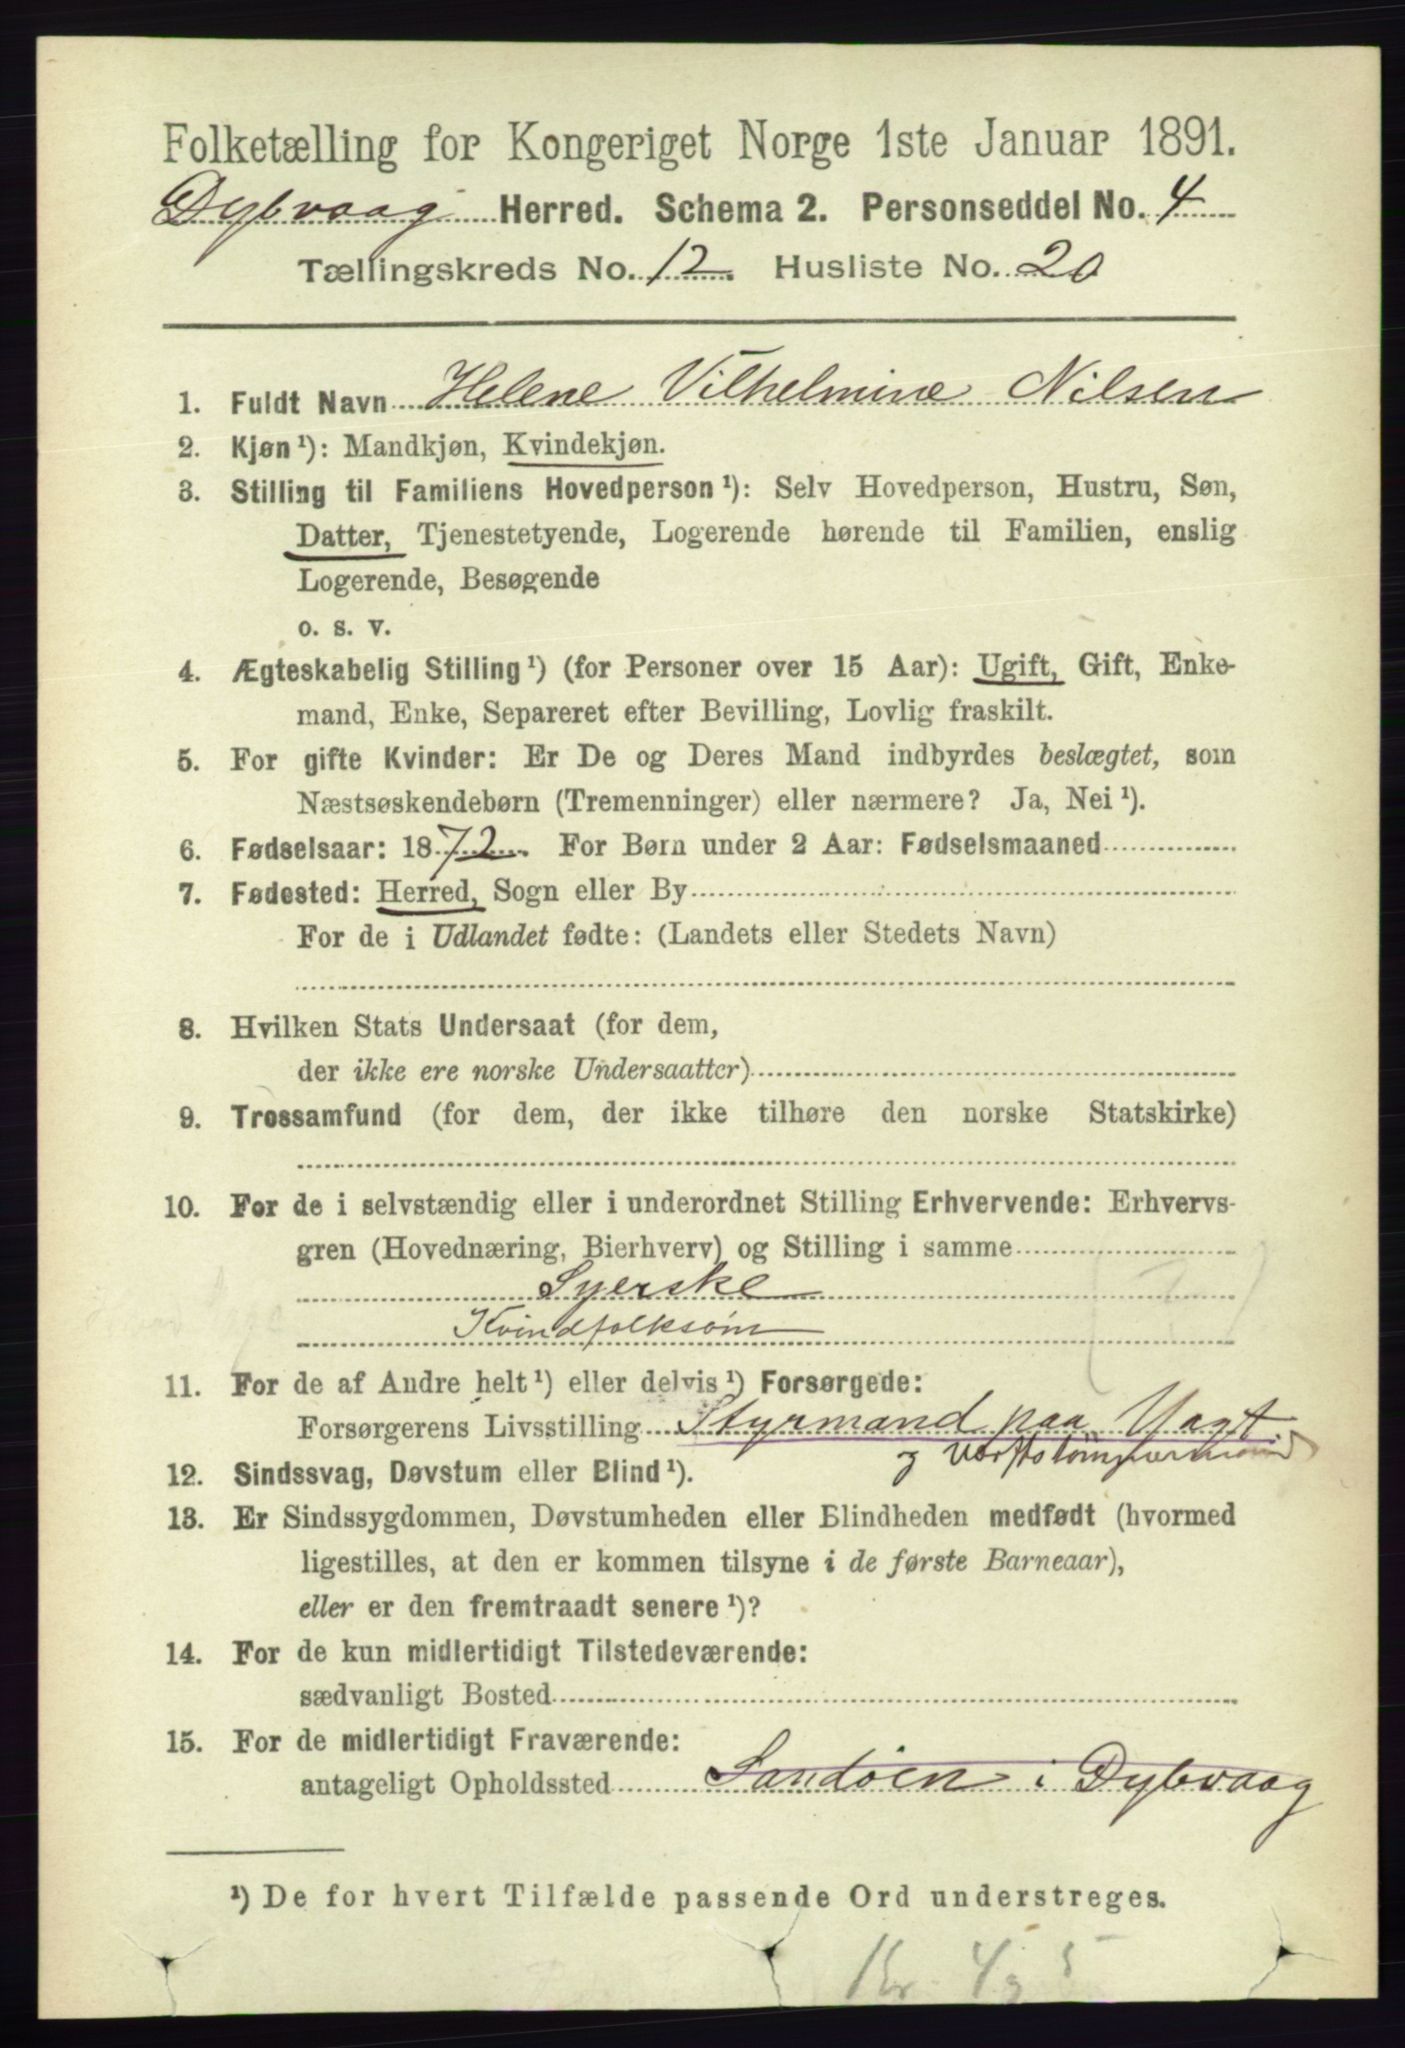 Folketælling for Kongeriget Norge 1ste Januar 1891.
Dybvaag Herred. Schema 2. Personseddel No. 4
Tællingskreds No. 12. Husliste No. 20
1. Fuldt Navn Helene Vilhelmine Nilsen
2. Kjøn¹): Mandkjøn, Kvindekjøn.
3. Stilling til Familiens Hovedperson¹): Selv Hovedperson, Hustru, Søn,
Datter, Tjenestetyende, Logerende hørende til Familien, enslig
Logerende, Besøgende
o. s. v.
4. Ægteskabelig Stilling¹) (for Personer over 15 Aar): Ugift, Gift, Enke-
mand, Enke, Separeret efter Bevilling, Lovlig fraskilt.
5. For gifte Kvinder: Er De og Deres Mand indbyrdes beslægtet, som
Næstsøskendebørn (Tremenninger) eller nærmere? Ja, Nei¹).
6. Fødselsaar: 1872. For Børn under 2 Aar: Fødselsmaaned
7. Fødested: Herred, Sogn eller By
For de i Udlandet fødte: (Landets eller Stedets Navn)
8. Hvilken Stats Undersaat (for dem,
der ikke ere norske Undersaatter)
9. Trossamfund (for dem, der ikke tilhøre den norske Statskirke)
10. For de i selvstændig eller i underordnet Stilling Erhvervende: Erhvervs-
gren (Hovednæring, Bierhverv) og Stilling i samme
Syerske
Kvindfolksøm
11. For de af Andre helt¹) eller delvis¹) Forsørgede:
Forsørgerens Livsstilling Styrmand paa Yagt
og
12. Sindssvag, Døvstum eller Blind¹).
13. Er Sindssygdommen, Døvstumheden eller Blindheden medfødt (hvormed
ligestilles, at den er kommen tilsyne i de første Barneaar),
eller er den fremtraadt senere¹)?
14. For de kun midlertidigt Tilstedeværende:
sædvanligt Bosted
15. For de midlertidigt Fraværende:
antageligt Opholdssted Sandøen i Dybvaag
¹) De for hvert Tilfælde passende Ord understreges.